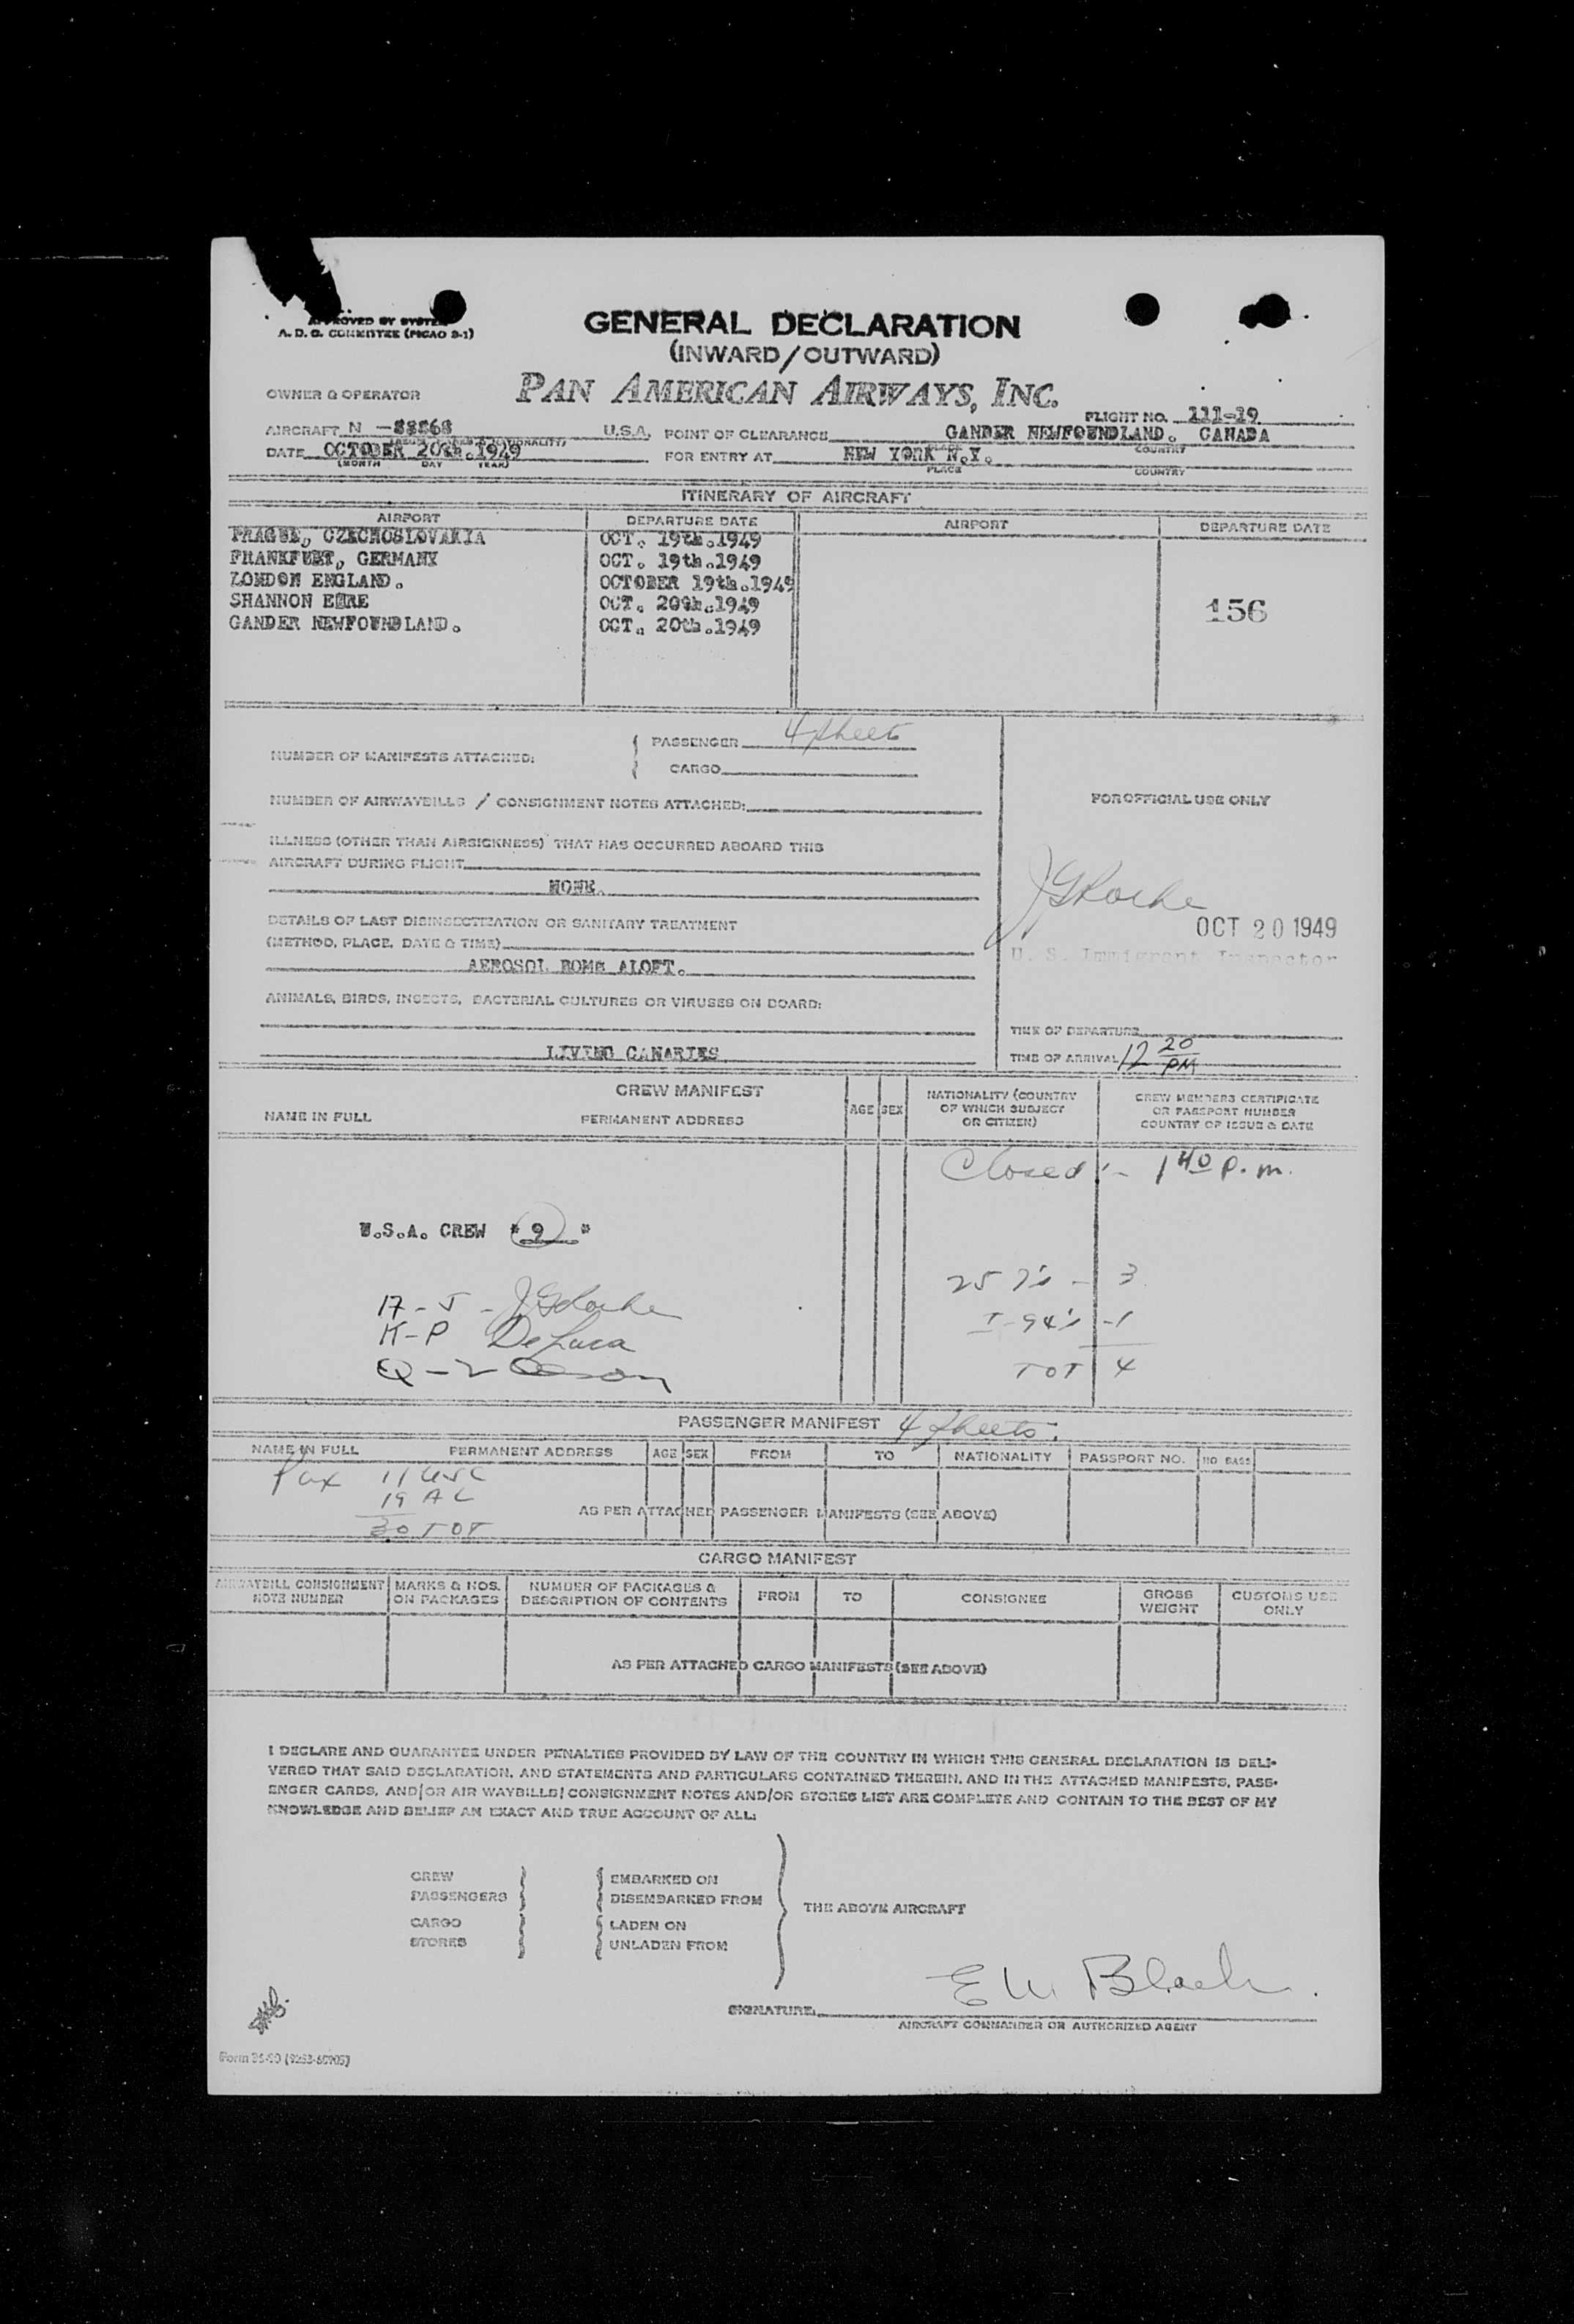 APPROVED BY SYSTEM
A. D. O. COMMITTEE (PICAO 2-1)
GENERAL DECLARATION
(INWARD/OUTWARD)
OWNER & OPERATOR
PAN AMERICAN AIRWAYS, INC.
FLIGHT NO. 111-19
AIRCRAFT N -88868 U.S.A. POINT OF CLEARANCE GANDER NEWFOUNDLAND. CANADA
DATE OCTOBER 20th.1949 FOR ENTRY AT NEW YORK N.Y.
(MONTH DAY YEAR) PLACE COUNTRY
ITINERARY OF AIRCRAFT
AIRPORT DEPARTURE DATE AIRPORT DEPARTURE DATE
PRAGUE, CZECHOSLOVAKIA OCT. 19th.1949
FRANKFURT, GERMANY OCT. 19th.1949
LONDON ENGLAND. OCTOBER 19th.1949
SHANNON EIRE OCT. 20th.1949
GANDER NEWFOUNDLAND. OCT. 20th.1949
156
NUMBER OF MANIFESTS ATTACHED: PASSENGER 4 sheets
CARGO
NUMBER OF AIRWAYBILLS / CONSIGNMENT NOTES ATTACHED:
FOR OFFICIAL USE ONLY
ILLNESS (OTHER THAN AIRSICKNESS) THAT HAS OCCURRED ABOARD THIS
AIRCRAFT DURING FLIGHT
NONE.
DETAILS OF LAST DISINSECTIZATION OR SANITARY TREATMENT
(METHOD, PLACE, DATE & TIME)
AEROSOL BOMB ALOFT.
JGRoche
OCT 20 1949
U. S. Immigrant Inspector
ANIMALS, BIRDS, INSECTS, BACTERIAL CULTURES OR VIRUSES ON BOARD:
LIVING CANARIES
TIME OF DEPARTURE
TIME OF ARRIVAL 12 20 PM
CREW MANIFEST
NAME IN FULL PERMANENT ADDRESS AGE SEX NATIONALITY (COUNTRY OF WHICH SUBJECT OR CITIZEN) CREW MEMBERS CERTIFICATE OR PASSPORT NUMBER COUNTRY OF ISSUE & DATE
Closed :- 1 40 p.m.
U.S.A. CREW " 9 "
257's - 3
17 - J - JGRoche
I-94's - 1
K-P DeLuca
TOT 4
PASSENGER MANIFEST 4 sheets.
NAME IN FULL PERMANENT ADDRESS AGE SEX FROM TO NATIONALITY PASSPORT NO. NO BAGS
Pax 11 USC
19 AL
30 TOT
AS PER ATTACHED PASSENGER MANIFESTS (SEE ABOVE)
CARGO MANIFEST
AIRWAYBILL CONSIGNMENT NOTE NUMBER MARKS & NOS. ON PACKAGES NUMBER OF PACKAGES & DESCRIPTION OF CONTENTS FROM TO CONSIGNEE GROSS WEIGHT CUSTOMS USE ONLY
AS PER ATTACHED CARGO MANIFESTS (SEE ABOVE)
I DECLARE AND GUARANTEE UNDER PENALTIES PROVIDED BY LAW OF THE COUNTRY IN WHICH THIS GENERAL DECLARATION IS DELI-
VERED THAT SAID DECLARATION, AND STATEMENTS AND PARTICULARS CONTAINED THEREIN, AND IN THE ATTACHED MANIFESTS, PASS-
ENGER CARDS, AND/OR AIR WAYBILLS/ CONSIGNMENT NOTES AND/OR STORES LIST ARE COMPLETE AND CONTAIN TO THE BEST OF MY
KNOWLEDGE AND BELIEF AN EXACT AND TRUE ACCOUNT OF ALL:
CREW EMBARKED ON
PASSENGERS DISEMBARKED FROM
THE ABOVE AIRCRAFT
CARGO LADEN ON
STORES UNLADEN FROM
E W Black.
SIGNATURE:
AIRCRAFT COMMANDER OR AUTHORIZED AGENT